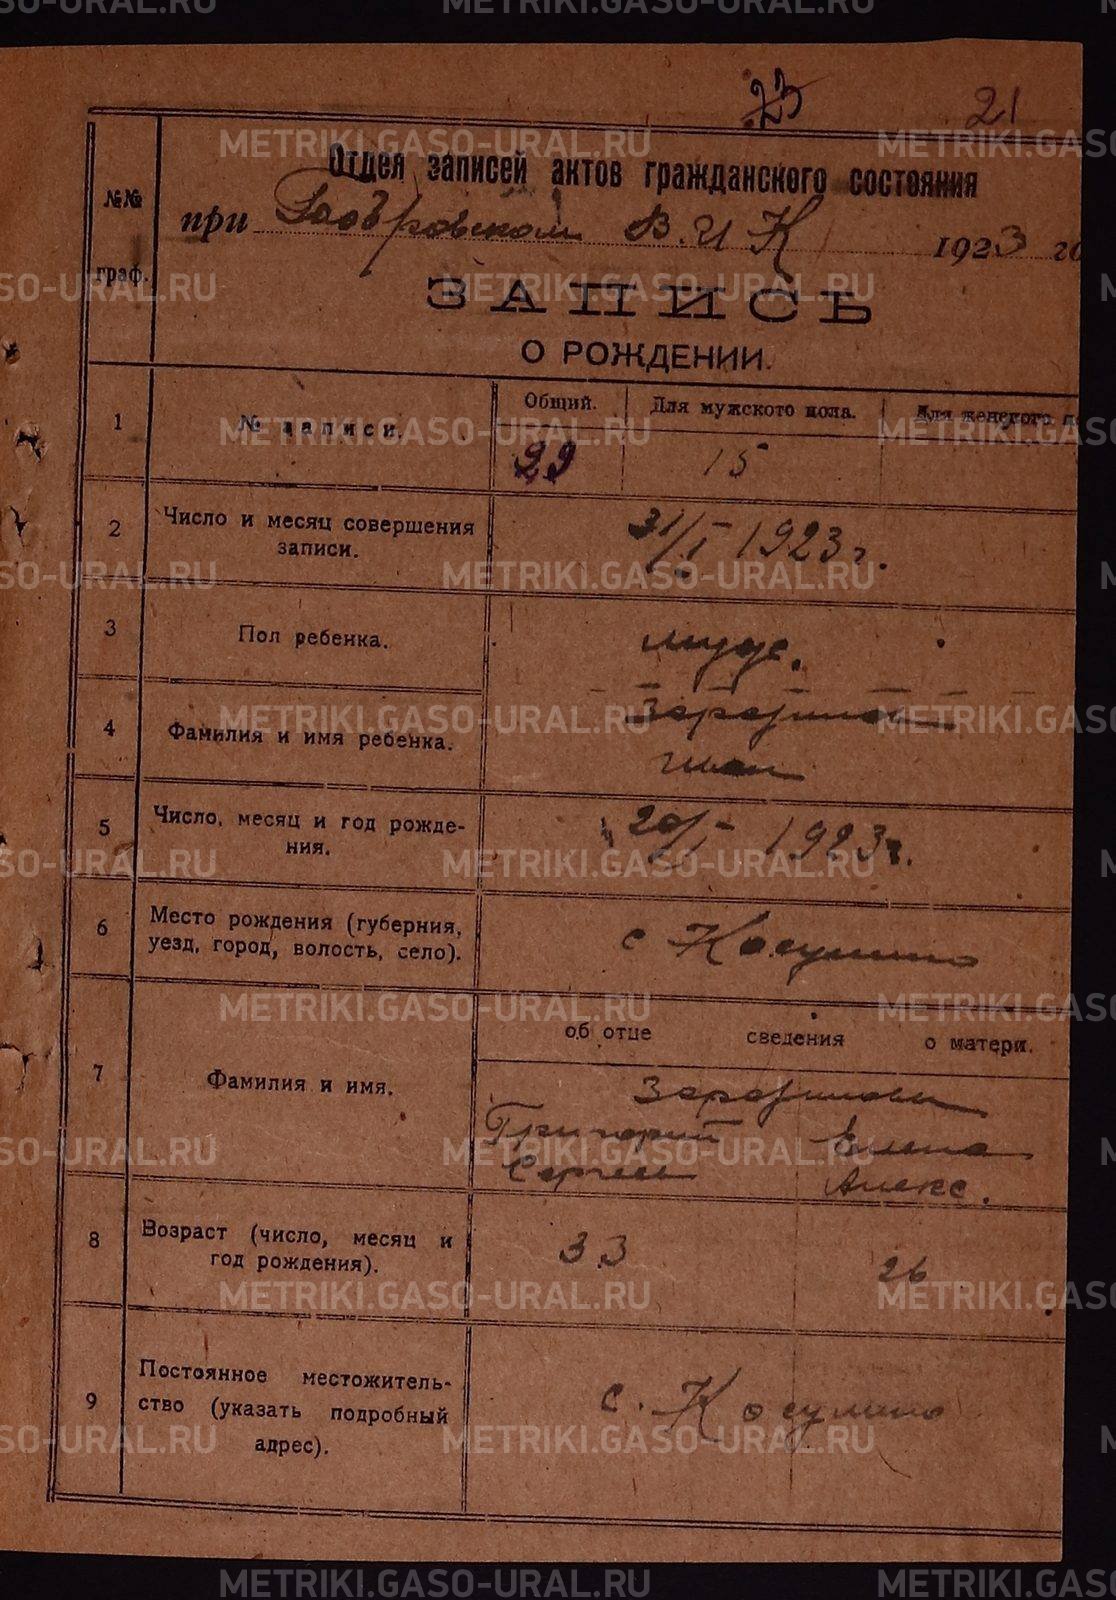 23 21
Отдел записей актов гражданского состояния
№№
граф.
при В. И К 1923 го
ЗАПИСЬ
О РОЖДЕНИИ.
1 № записи. Общий. Для мужского пола. Для женского по
29 15
2 Число и месяц совершения
записи.
31/I 1923 г.
3 Пол ребенка. муж.
4 Фамилия и имя ребенка.
Иван
5 Число, месяц и год рожде-
ния.
20/I 1923 г.
6 Место рождения (губерния,
уезд, город, волость, село).
с Косулино
об отце сведения о матери.
7 Фамилия и имя.
Григорий Елена
Сергеев Алекс.
8 Возраст (число, месяц и
год рождения).
33 26
9 Постоянное местожитель-
ство (указать подробный
адрес).
с. Косулино
METRIKI.GASO-URAL.RU